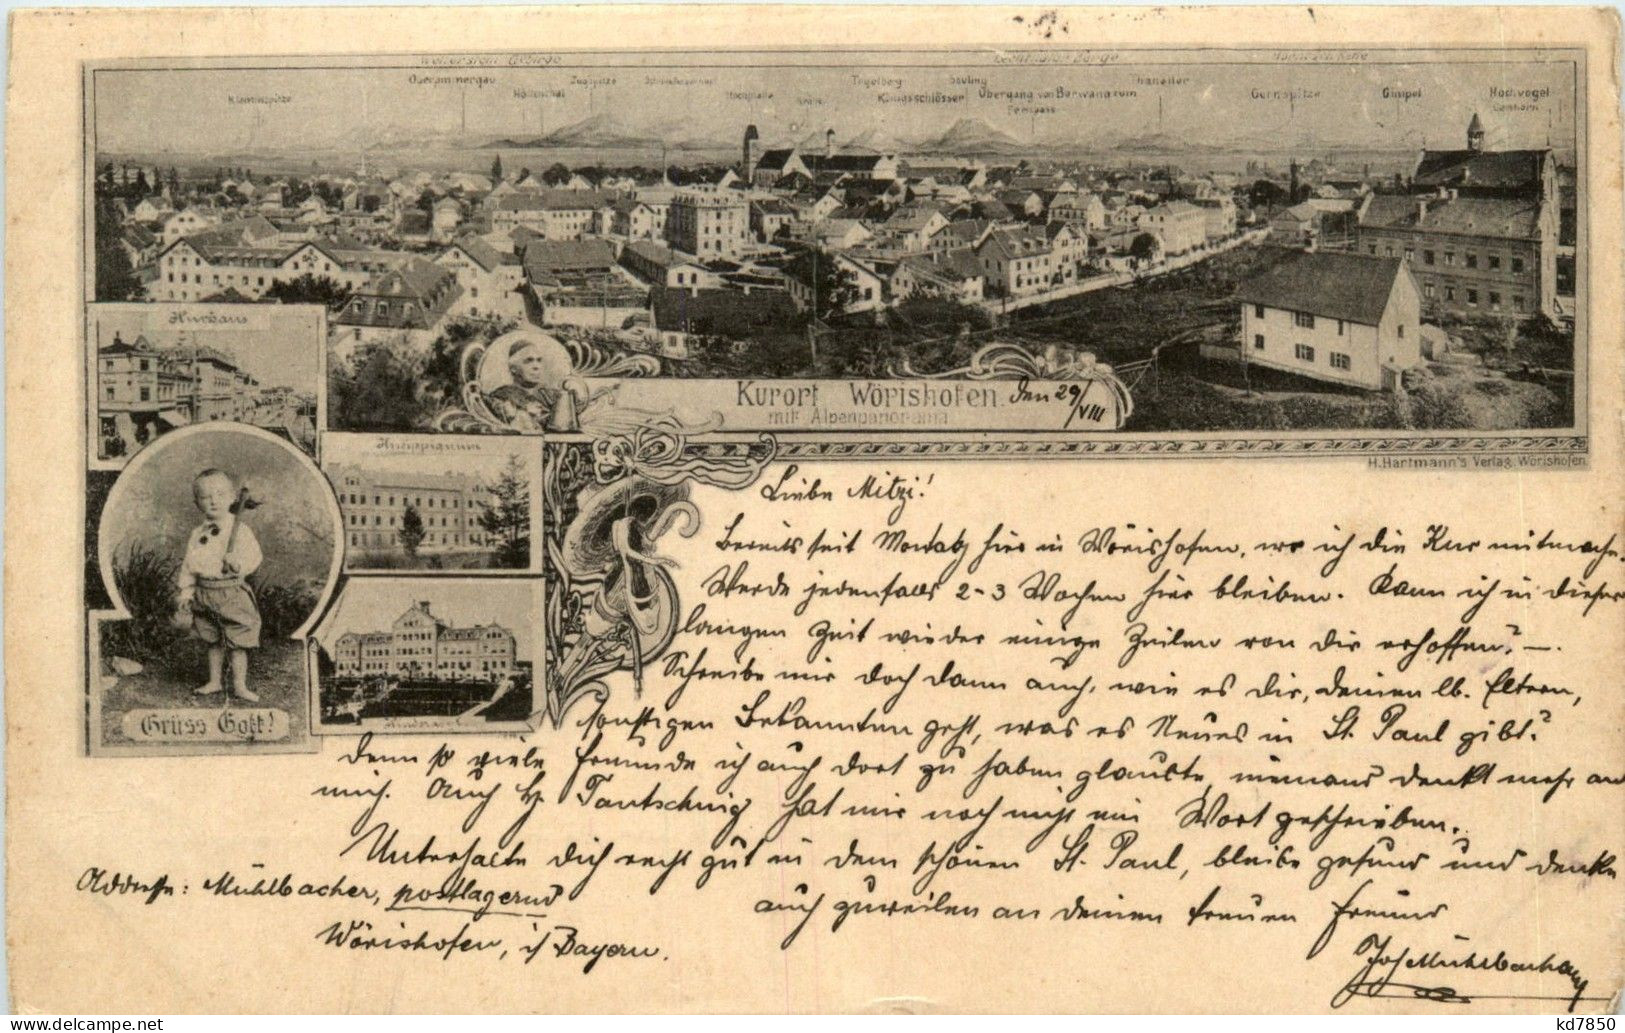 Wetterstein Gebirge
Oberammergau
Zugspitze
Tegelberg
Säuling
Hochvogel
Klammspitze
Höllenthal
Hochplatte
Königsschlösser
Übergang von Berwang zum
Gernspitze
Gimpel
Fernpass
Kurhaus
Kurort Wörishofen. den 29/VIII
mit Alpenpanorama
H. Hartmann's Verlag, Wörishofen.
Grüss Gott!
Liebe Mitzi!
Bereits seit Montag hier in Wörishofen, wo ich die Kur mitmache.
Werde jedenfalls 2-3 Wochen hier bleiben. Kann ich in dieser
langen Zeit wieder einige Zeilen von dir erhoffen? —.
Schreibe mir doch dann auch, wie es dir, deinen lb. Eltern,
sonstigen Bekannten geht, was es Neues in St. Paul gibt?
denn so viele Freunde ich auch dort zu haben glaubte, niemand denkt mehr an
mich. Auch H. Tautschnig hat mir noch nicht ein Wort geschrieben.
Unterhalte dich recht gut in dem schönen St. Paul, bleibe gesund und denke
auch zuweilen an deinen treuen Freund
Jos Mühlbacher
Addresse: Mühlbacher, postlagernd
Wörishofen, i/ Bayern.
kd7850